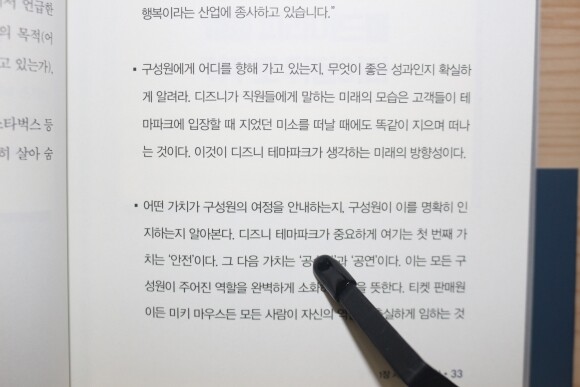 에서 언급한
의 목적(어
고 있는가),
스타벅스 등
히 살아 숨
행복이라는 산업에 종사하고 있습니다."
• 구성원에게 어디를 향해 가고 있는지, 무엇이 좋은 성과인지 확실하
게 알려라. 디즈니가 직원들에게 말하는 미래의 모습은 고객들이 테
마파크에 입장할 때 지었던 미소를 떠날 때에도 똑같이 지으며 떠나
는 것이다. 이것이 디즈니 테마파크가 생각하는 미래의 방향성이다.
• 어떤 가치가 구성원의 여정을 안내하는지, 구성원이 이를 명확히 인
지하는지 알아본다. 디즈니 테마파크가 중요하게 여기는 첫 번째 가
치는 '안전'이다. 그 다음 가치는 '공 과 '공연'이다. 이는 모든 구
성원이 주어진 역할을 완벽하게 소화 을 뜻한다. 티켓 판매원
이든 미키 마우스든 모든 사람이 자신의 충실하게 임하는 것
1장 • 33